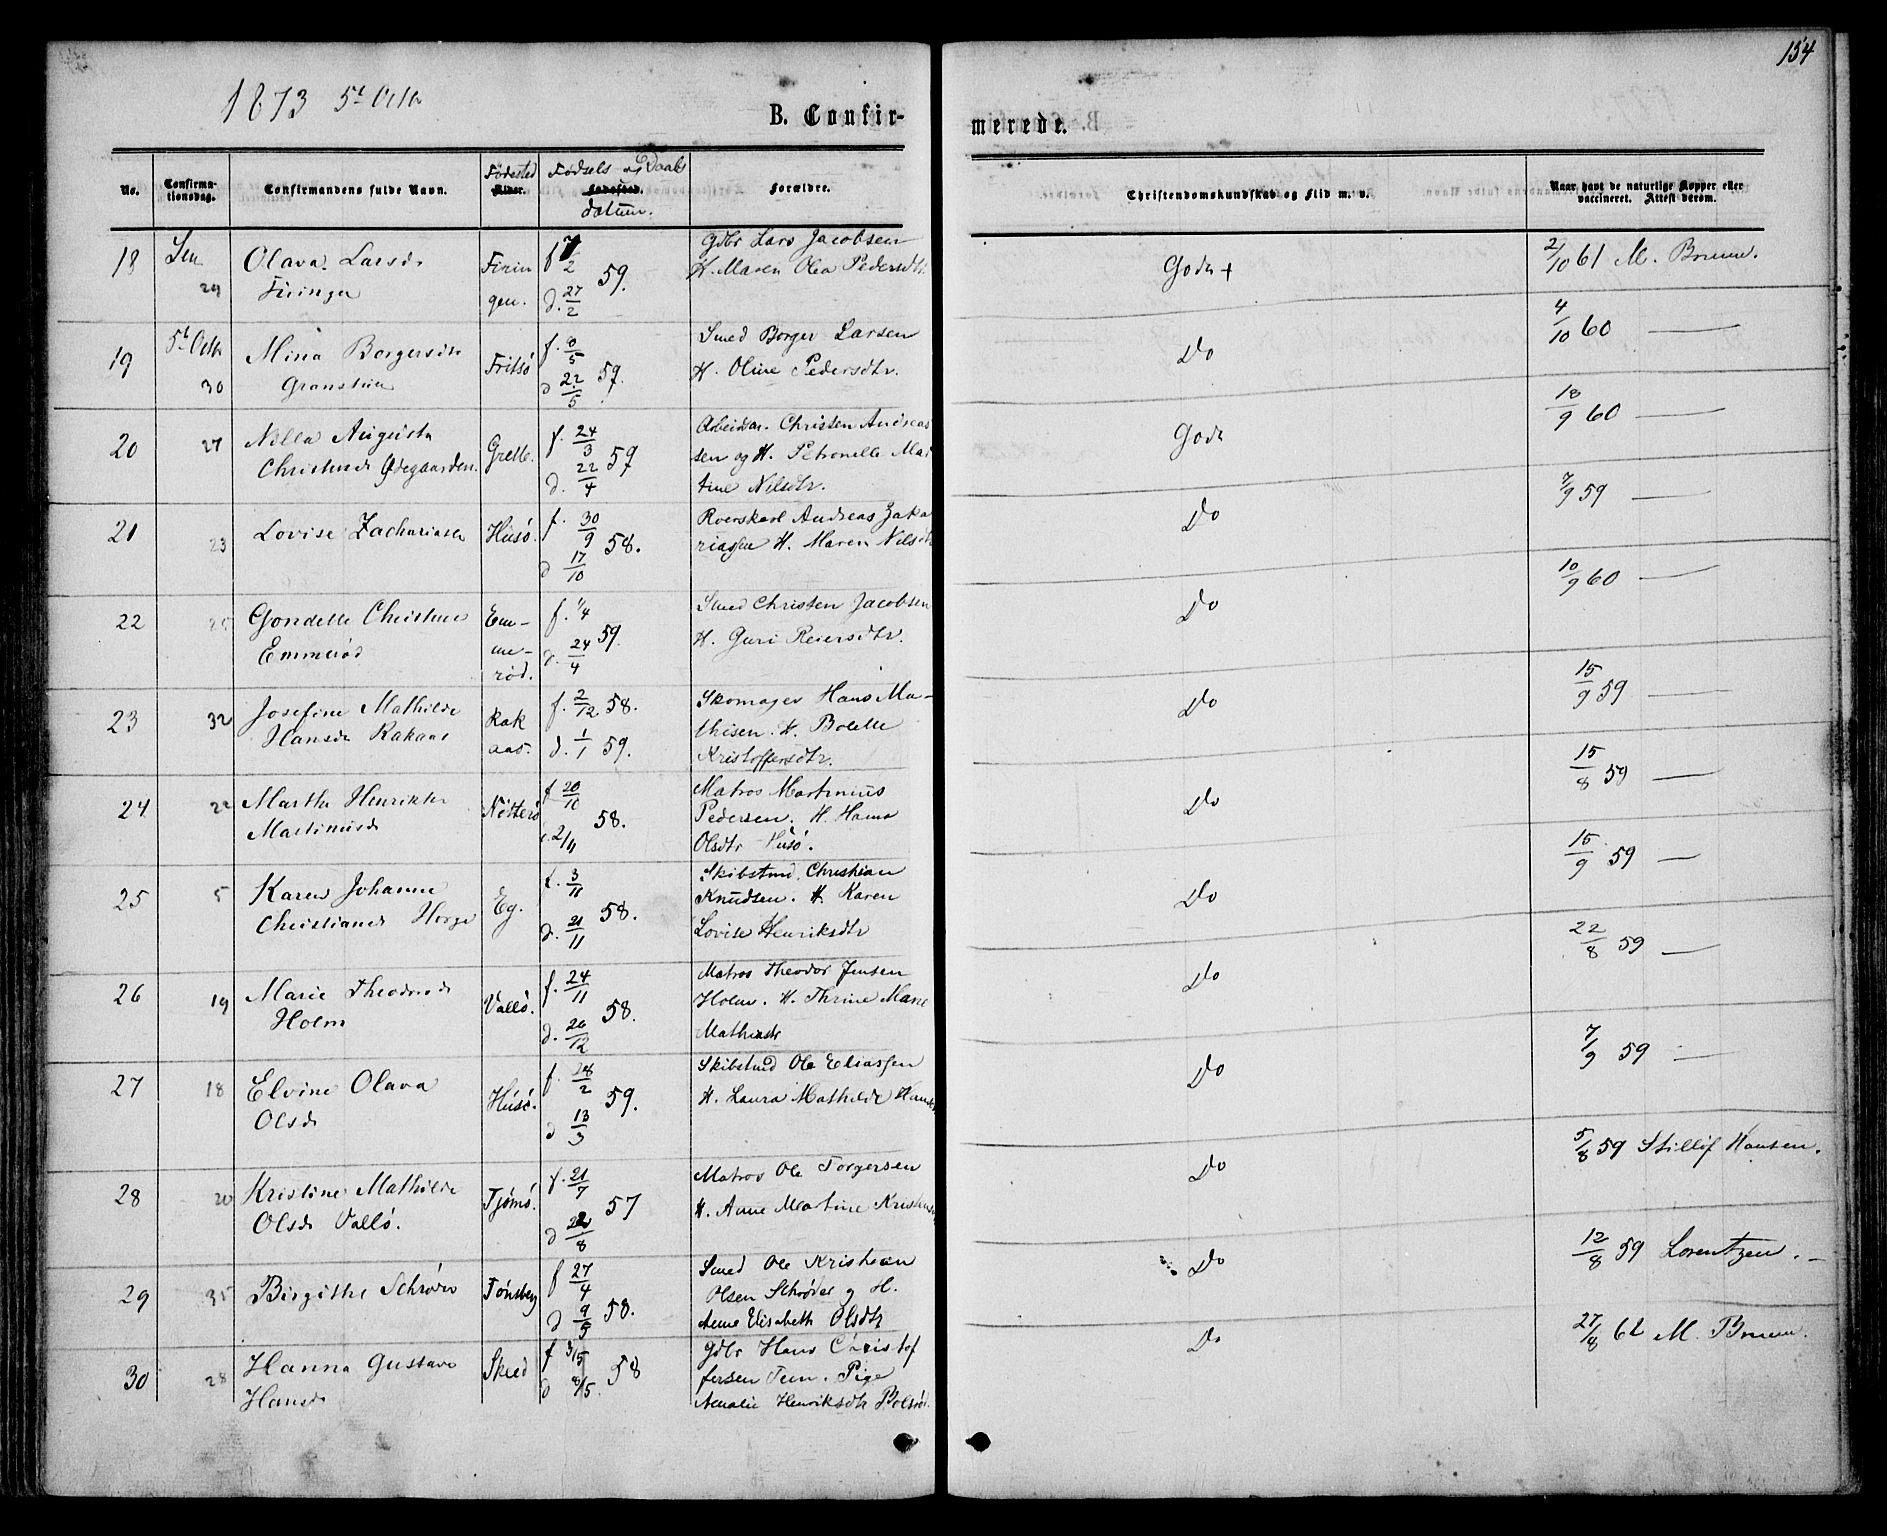 154
1873 5t Octbr
B. Confir-
merede.
No.
Confirma-
tionsdag.
Confirmandens fulde Navn.
Fødested
Alder.
Fødsels og Daabs
Fødested.
datum.
Forældre.
Christendomskundskab og Flid m. v.
Naar havt de naturlige Kopper eller
vaccineret. Attest derom.
18
29
Olava Larsdr
Firingen
Firin
gen.
f 7/2
d. 27/2 59.
Gdbr Lars Jacobsen
H. Maren Olea Pedersdtr.
Godt +
2/10 61 M. Bruun.
19
5t Octbr
30
Mina Borgersdr
Granstuen
Fritsø
f. 8/5
d 22/5 57.
Smed Borger Larsen
H. Oline Pedersdtr.
Do
4/10 60 —
20
27
Nilla Augusta
Christensdr Ødegaarden.
Grette.
f. 24/3
d. 22/4 57
Arbeidsm. Christen Andreas
sen og H. Petronelle Mar
tine Nilsdtr.
Godt
18/9 60 —
21
23
Lovise Zachariasdr
Husø.
f. 30/9
d 17/10 58.
Andreas Zaka
riassen H. Maren Nilsdtr
Do
7/9 59 —
22
25
Gondelle Christensdr
Emmerød
Em-
me-
rød.
f. 1/4
d. 24/4 59.
Smed Christen Jacobsen
H. Guri Reiersdtr.
Do
10/9 60 —
23
32
Josefine Mathilde
Hansdr Rakaas
Rak
aas.
f. 2/12 58.
d. 1/1 59.
Skomager Hans Ma-
thisen. H. Bolette
Kristoffersdtr.
Do
15/9 59 —
24
22
Marthe Henrikke
Martinusdr
Nøtterø
f 20/10
d. 2/11 58.
Matros Martinius
Pedersen. H. Hanna
Olsdtr Husø.
Do
15/8 59 —
25
5
Karen Johanne
Christiansdr Horge
Eg.
f. 3/11
d. 21/11 58.
Skibstmd. Christian
Knudsen. H. Karen
Lovise Henriksdtr
Do
15/9 59 —
26
19
Marie Theodorsdr
Holm
Vallø.
f. 24/11
d. 26/12 58.
Matros Theodor Jensen
Holm. H. Thrine Marie
Mathiasdr
Do
22/8 59 —
27
18
Elvine Olava
Olsdr
Husø.
f. 18/2
d 13/3 59.
Skibstmd Ole Eliassen
H. Laura Mathilde Hansdr
Do
7/9 59 —
28
20
Kristine Mathilde
Olsdr Vallø.
Tjømø.
f. 21/7
d 22/8 57
Matros Ole Torgersen
H. Anne Martine Kristensdr
Do
5/8 59 Stillof Hansen.
29
35
Birgithe Schrøder
Tønsberg
f 27/4
d 9/5 58.
Smed Ole Kristian
Olsen Schrøder og H.
Anne Elisabeth Olsdtr
Do
12/8 59 Lorentzen. —
30
28
Hanna Gustava
Hansdr
Skied
f 3/5
d 8/5. 58
Gdbr Hans Christof
fersen Tem. Pige
Amalie Henriksdtr Bolsrød.
Do
27/8 62 M. Bruun.